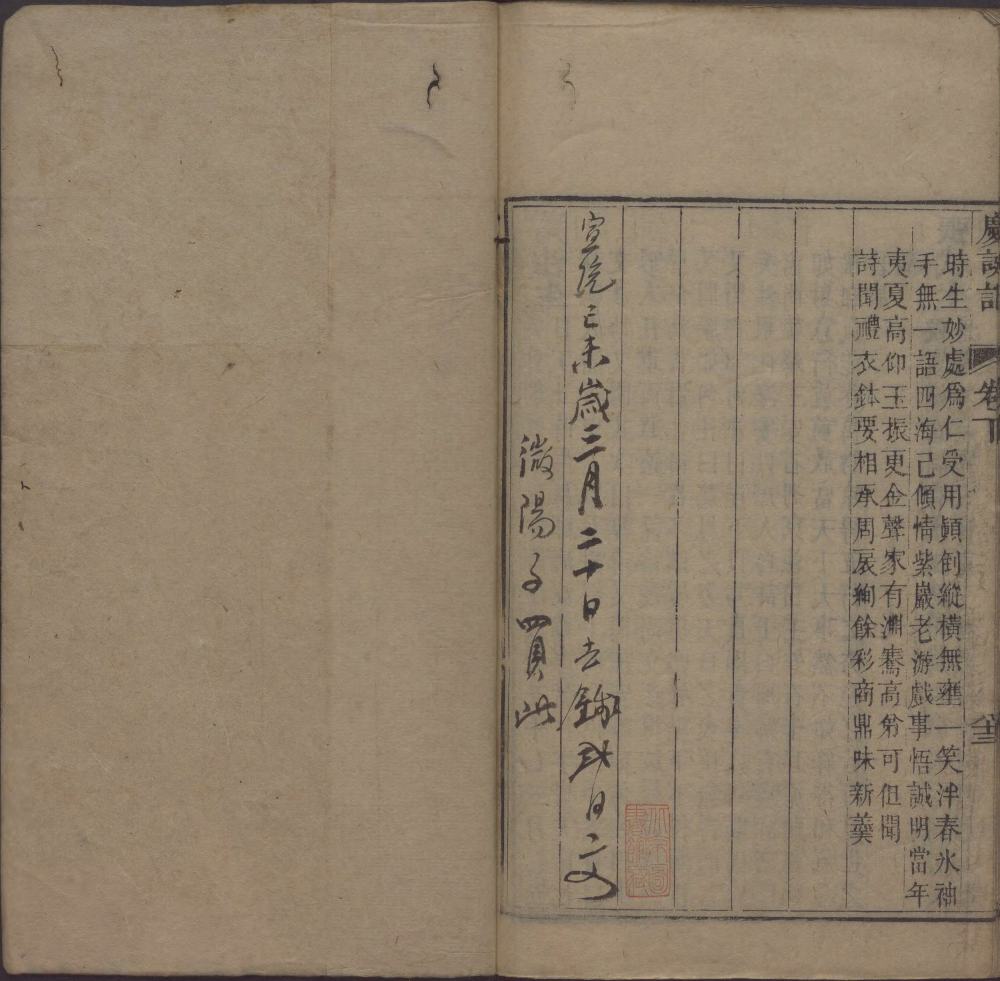 慶誕記 卷下 六十三
時生妙處爲仁受用顛倒縱橫無壅一笑泮春氷袖
手無一語四海己傾情紫巖老游戲事悟誠明當年
夷夏高仰玉振更金聲家有淵騫高弟可但聞
詩聞禮衣鉢要相承周扆絢餘彩商鼎味新羹
宣统己未歲三月二十日去錢弐百文
溦陽子買此